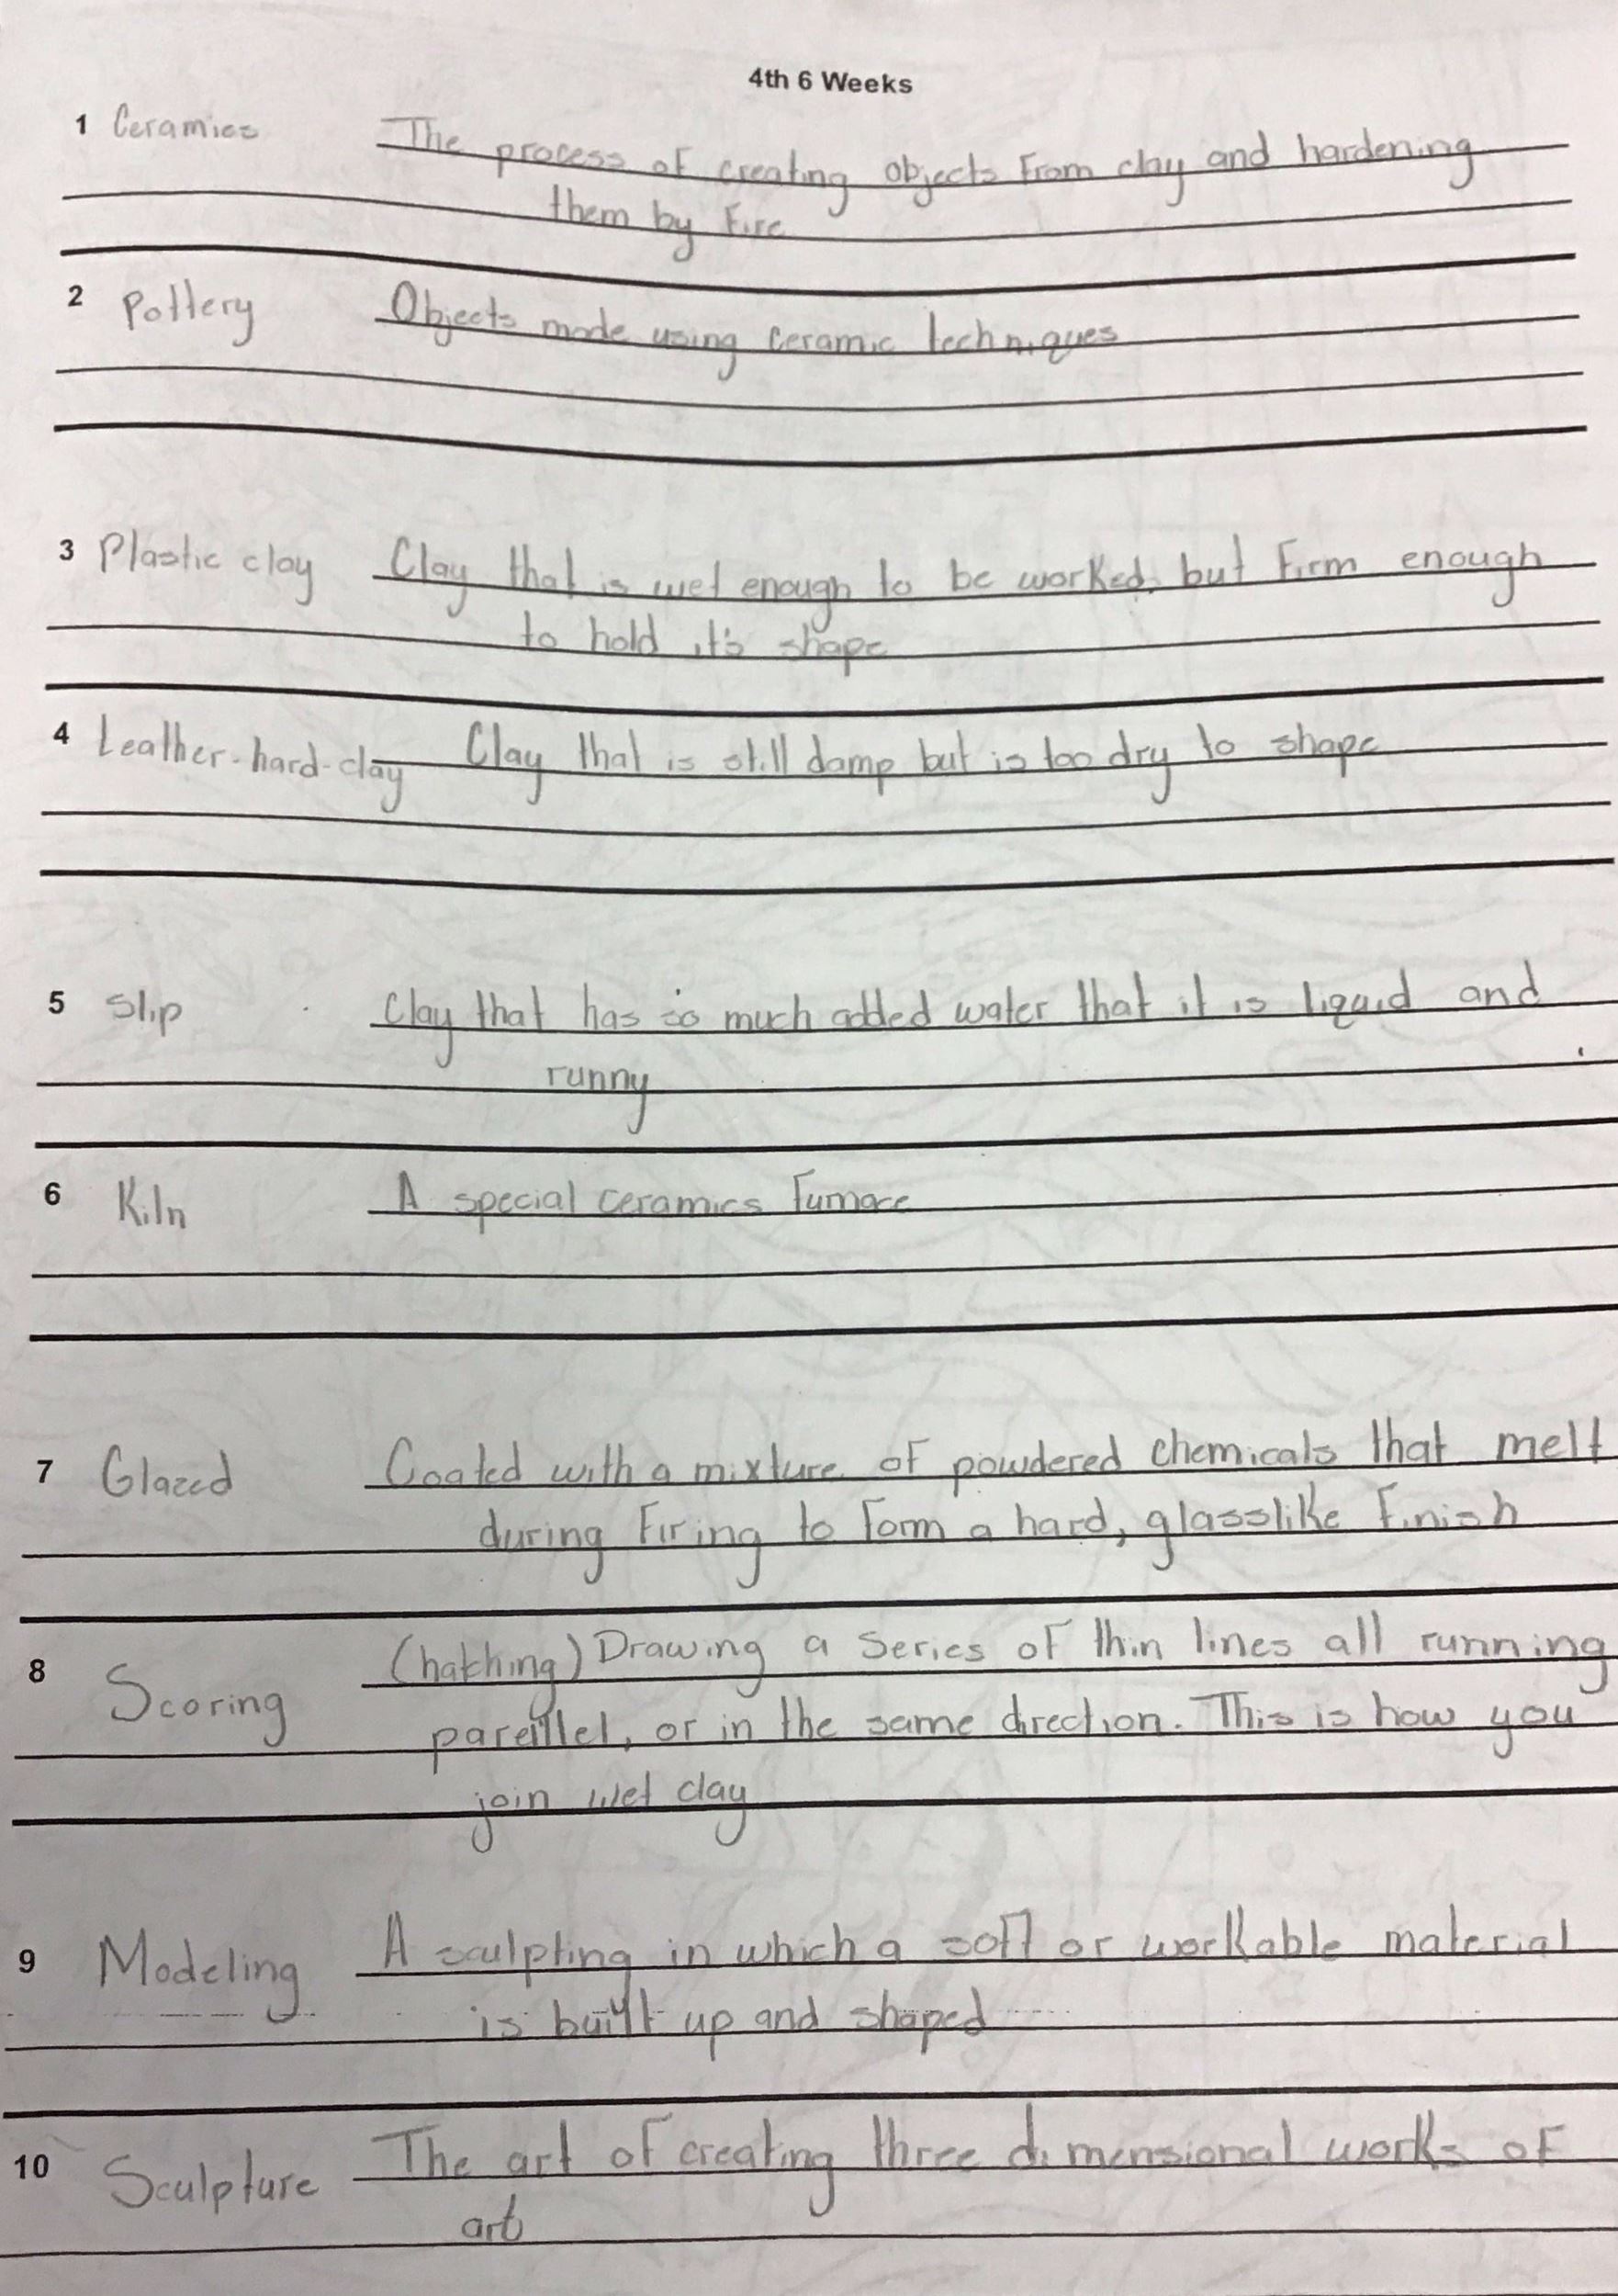 4th 6 Weeks
1 Ceramics The process of creating objects from clay and hardening
them by fire
2 Pottery Objects made using ceramic techniques
3 Plastic clay Clay that is wet enough to be worked, but firm enough
to hold it's shape
4 Leather-hard-clay Clay that is still damp but is too dry to shape
5 Slip Clay that has so much added water that it is liquid and
runny
6 Kiln A special ceramics furnace
7 Glazed Coated with a mixture of powdered chemicals that melt
during firing to form a hard, glasslike finish
8 Scoring (hatching) Drawing a series of thin lines all running
parellel, or in the same direction. This is how you
join wet clay
9 Modeling A sculpting in which a soft or workable material
is built up and shaped
10 Sculpture The art of creating three dimensional works of
art